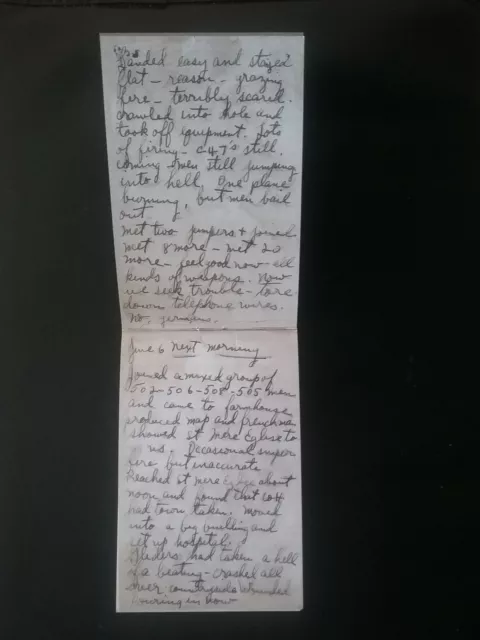 Landed easy and stayed
flat - reason - grazing
fire - terribly scared.
crawled into hole and
took off equipment. Lots
of firing - C-47's still
coming & men still jumping
into hell. One plane
burning, but men bail
out.
Met two jumpers & joined
met 8 more - met 20
more - feel good now - all
kinds of weapons. Now
we seek trouble - tore
down telephone wires.
No. Jermans.
June 6 next morning
Joined a mixed group of
502 - 506 - 508 - 505 men
and came to farmhouse
produced map and frenchman
showed St Mere Eglise to
us. Occasional sniper
fire but inaccurate
Reached St mere Eglise about
noon and found that
had town taken. Moved
into a big building and
set up hospital.
Gliders had taken a hell
of a beating - crashed all
over countryside wounded
coming in now